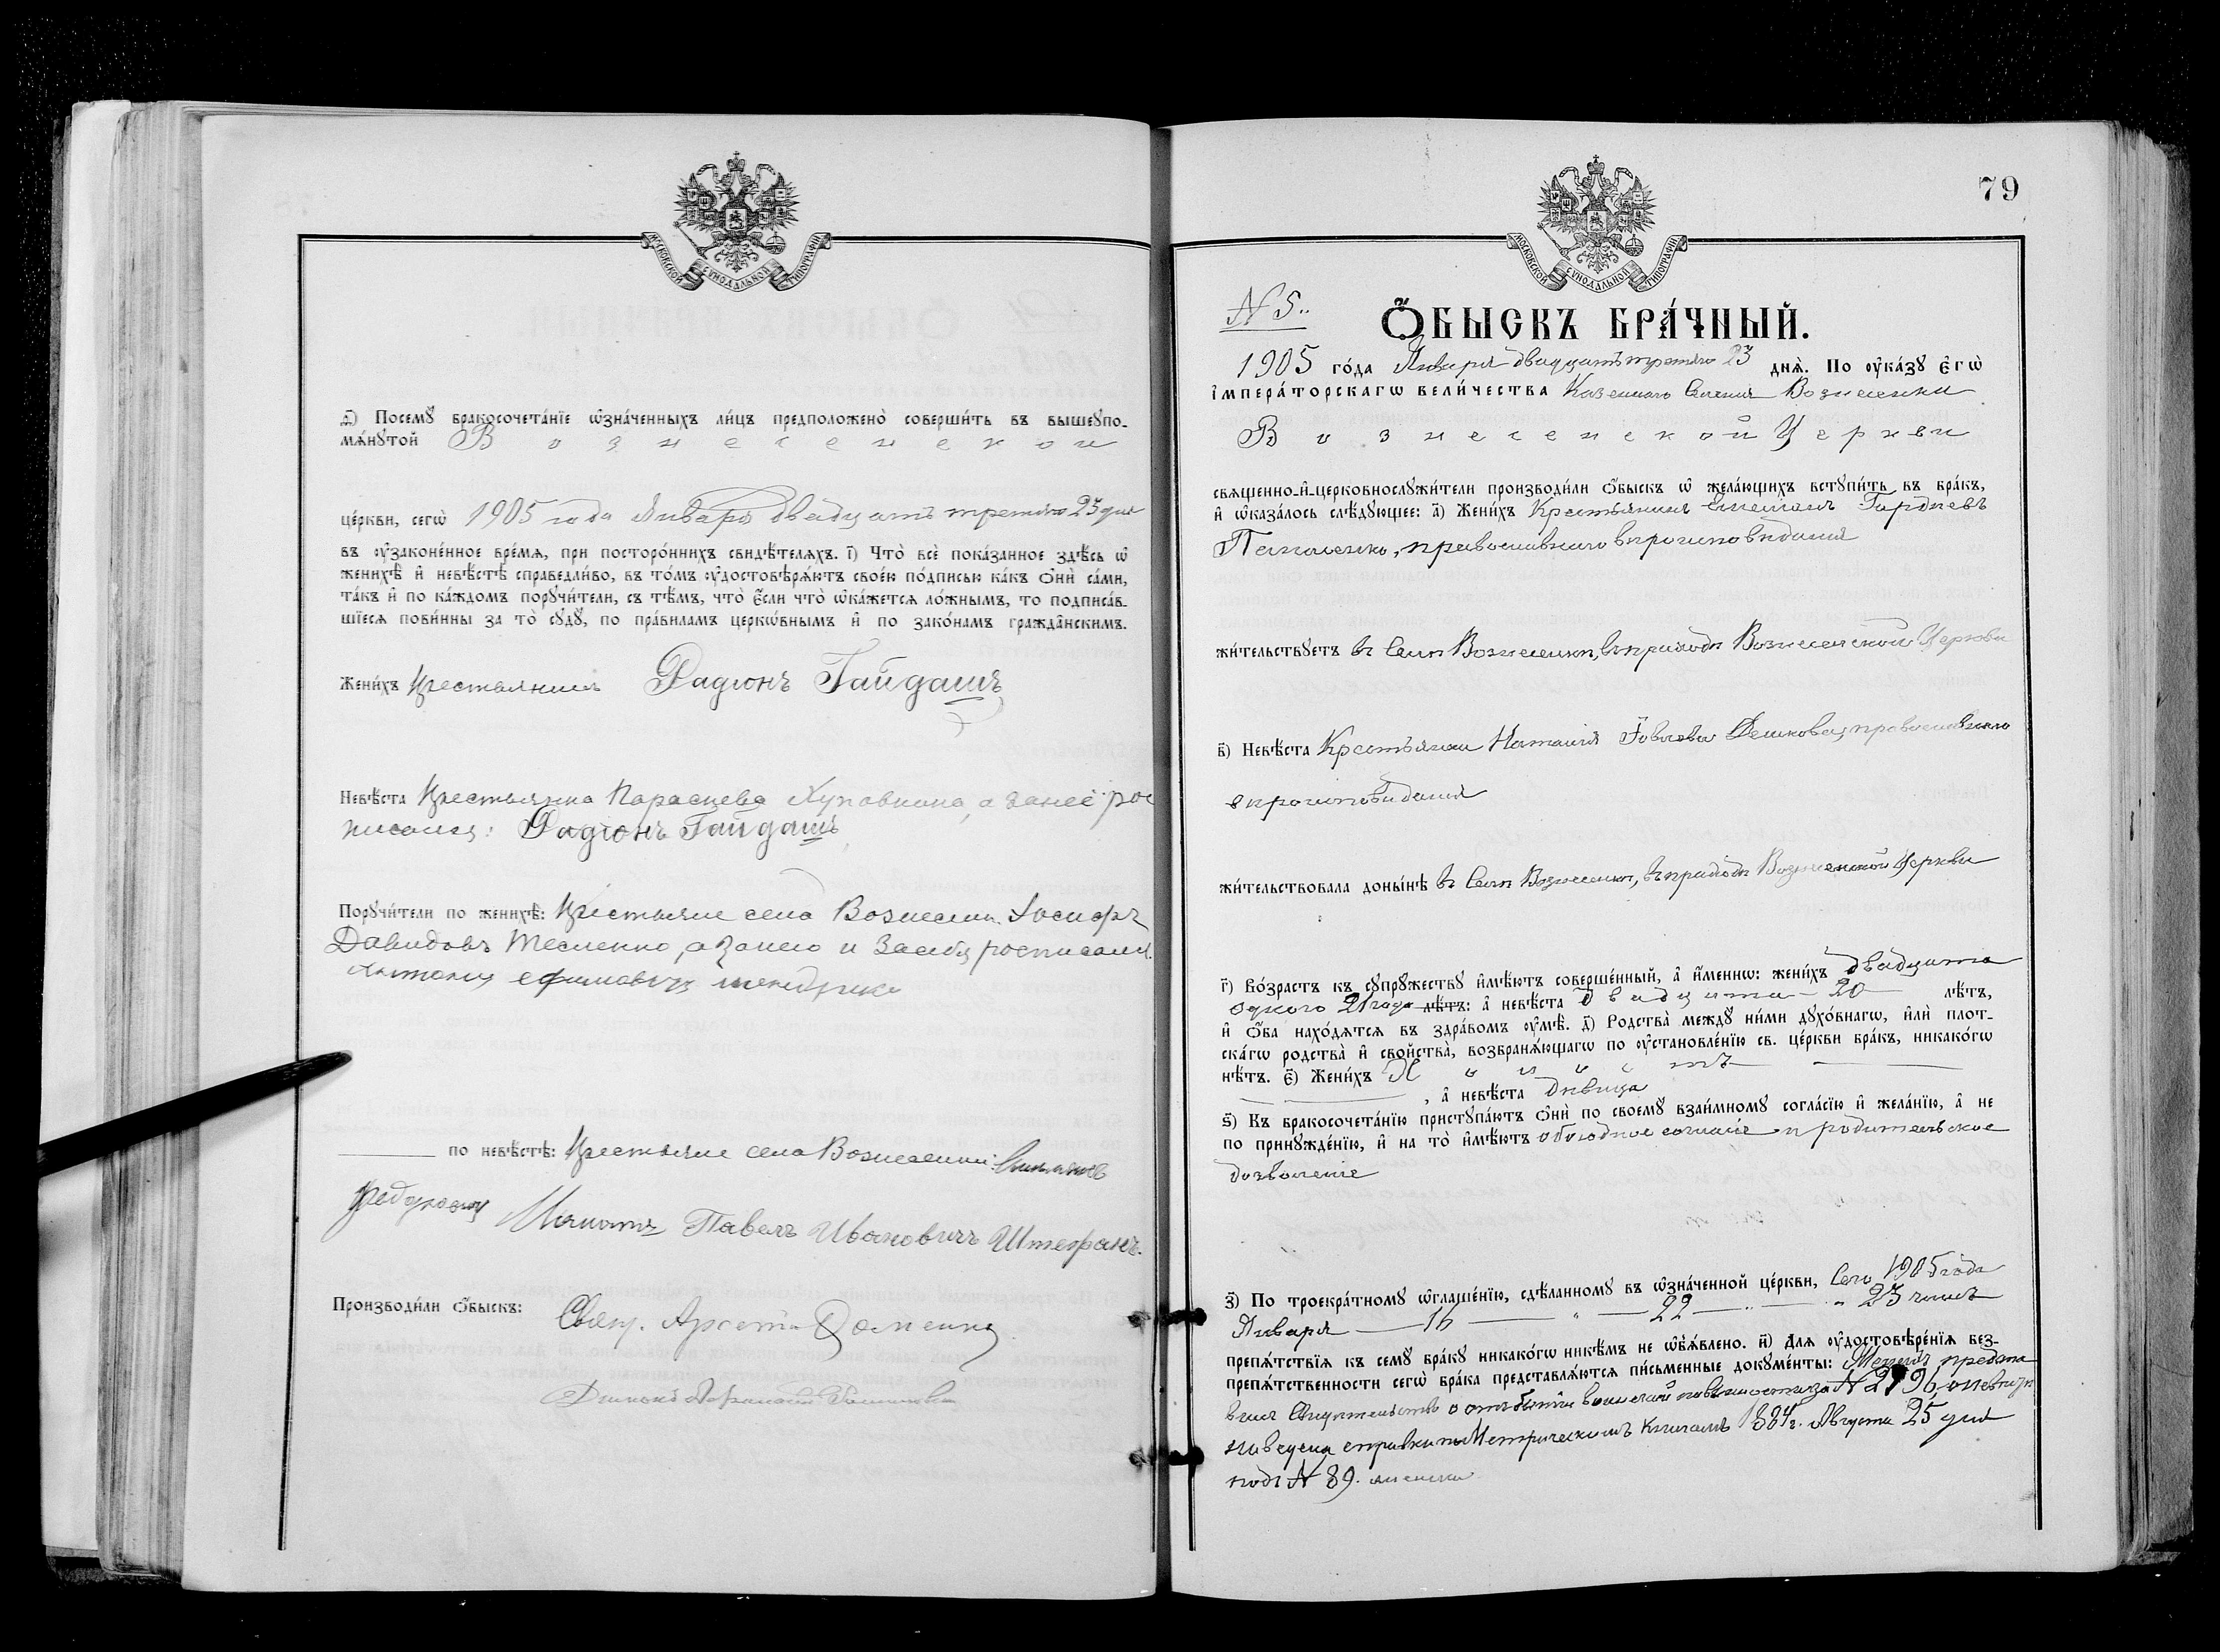 МОСКОВСКОЙ СѴНОДАЛЬНОЙ ТИПОГРАФІИ
ѳ҃) Посемꙋ̀ бракосочета́нїе ѡ҆зна́ченныхъ ли́цъ предположено̀ соверши́ть въ вышеꙋпо-
мѧ́нꙋтой Вознесенской
це́ркви, сегѡ̀ 1905 года Января двадцать третьяго 23 дня
въ ᲂу҆законе́нное вре́мѧ, при посторо́ннихъ свидѣ́телѧхъ. і҃) Что̀ всѐ пока́занное здѣ́сь ѡ҆
женихѣ̀ и҆ невѣ́стѣ справедли́во, въ то́мъ ᲂу҆достовѣрѧ́ютъ свое́ю по́дписью ка́къ ѻ҆нѝ са́ми,
та́къ и҆ по ка́ждомъ порꙋчи́тели, съ тѣ́мъ, что̀ є҆́сли что̀ ѡ҆ка́жетсѧ ло́жнымъ, то подписа́в-
шїесѧ пови́нны за то̀ сꙋдꙋ̀, по пра́виламъ церкѡ́внымъ и҆ по зако́намъ гражда́нскимъ.
Жени́хъ Крестьянинъ Радіонъ Гайдашъ
Невѣ́ста Крестьянка Параскева, а занее рос
писался: Радіонъ Гайдашъ
Порꙋчи́тели по женихѣ̀: Крестьяне села Вознесенки Іосифъ
Давидовъ Тесленко, а занего и засебя росписался
Антоній Ефимовичъ
по невѣ́стѣ: Крестьяне села Вознесенки:
Федоровъ Павелъ Ивановичъ Штефанъ.
Производи́ли ѻ҆́быскъ: Свящ. Арсеній
79
МОСКОВСКОЙ СѴНОДАЛЬНОЙ ТИПОГРАФІИ
N 5.
Ѻ҆́БЫСКЪ БРА́ЧНЫЙ.
1905 го́да Января двадцать третьяго 23 днѧ̀. По ᲂу҆ка́зꙋ є҆гѡ̀
і҆мпера́торскагѡ вели́чества Казеннаго Селенія Вознесенки
Вознесенской Церкви
свѧщенно-и҆-церковнослꙋжи́тели производи́ли ѻ҆́быскъ ѡ҆ жела́ющихъ встꙋпи́ть въ бра́къ,
и҆ ѡ҆каза́лось слѣ́дꙋющее: а҃) Жени́хъ Крестьянинъ Гордѣевъ
православнаго вѣроисповѣданія
жи́тельствꙋетъ въ Селѣ Вознесенкѣ, въ приходѣ Вознесенской Церкви
в҃) Невѣ́ста Крестьянка Наталія Іовлева православнаго
вѣроисповѣданія
жи́тельствовала донынѣ въ Селѣ Вознесенкѣ, въ приходѣ Вознесенской Церкви
г҃) Во́зрастъ къ сꙋпрꙋ́жествꙋ и҆мѣ́ютъ соверше́нный, а҆ и҆́меннѡ: жени́хъ двадцати
одного 21 года лѣ́тъ: а҆ невѣ́ста двадцати 20 лѣ́тъ,
и҆ ѻ҆́ба нахо́дѧтсѧ въ здра́вомъ ᲂу҆мѣ̀. д҃) Родства̀ междꙋ̀ ни́ми дꙋхо́внагѡ, и҆лѝ плот-
ска́гѡ родства̀ и҆ сво́йства̀, возбранѧ́ющагѡ по ᲂу҆становле́нїю св. це́ркви бра́къ, никако́гѡ
нѣ́тъ. є҃) Жени́хъ
, а҆ невѣ́ста дѣвица
ѕ҃) Къ бракосочета́нїю пристꙋпа́ютъ ѻ҆нѝ по своемꙋ̀ взаи́мномꙋ согла́сїю и҆ жела́нїю, а҆ не
по принꙋжде́нїю, и҆ на то̀ и҆мѣ́ютъ обоюдное согласіе и родительское
дозволеніе
з҃) По троекра́тномꙋ ѡ҆глаше́нїю, сдѣ́ланномꙋ въ ѡ҆зна́ченной це́ркви, Сего 1905 года
Января 16 22 23 числъ
препѧ́тствїѧ къ семꙋ̀ бра́кꙋ никако́гѡ никѣ́мъ не ѡ҆б̾ѧ́влено. и҃) Длѧ ᲂу҆достовѣре́нїѧ без-
препѧ́тственности сегѡ̀ бра́ка представлѧ́ютсѧ пи́сьменные докꙋме́нты: предста
вилъ Свидѣтельство о воинской повинности за N о невѣстѣ
наведена справка по Метрическимъ Книгамъ 1884 г. Августа 25 дня
подъ N 89.